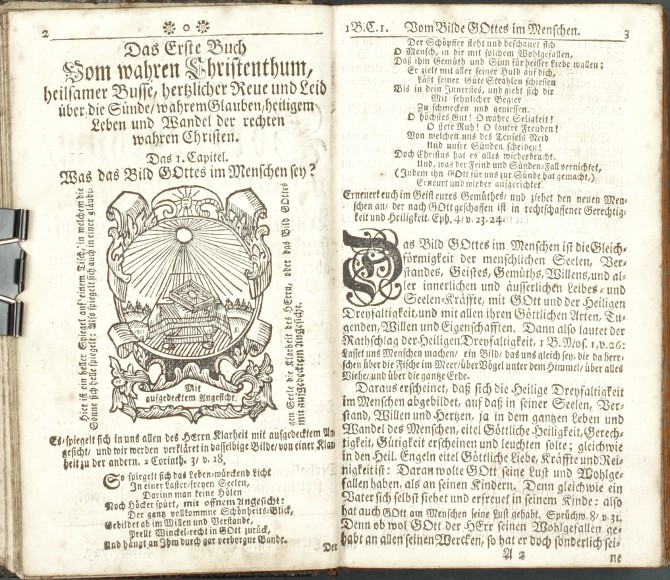 2
Das Erste Buch
Vom wahren Christenthum,
heilsamer Busse, hertzlicher Reue und Leid
über die Sünde, wahrem Glauben, heiligem
Leben und Wandel der rechten
wahren Christen.
Das 1. Capitel.
Was das Bild GOttes im Menschen sey?
Hier ist ein heller Spiegel auf einem Tisch, in welchem die
Sonne sich helle spiegelt: Also spiegelt sich auch in einer gläubi-
gen Seele die Klarheit des HErrn, oder das Bild GOttes
mit aufgedecktem Angesicht.
Mit
aufgedecktem Angesicht.
Es spiegelt sich in uns allen des HErrn Klarheit mit aufgedecktem An-
gesicht, und wir werden verkläret in dasselbige Bilde, von einer Klar-
heit zu der andern. 2 Corinth. 3/ v. 18.
So spiegelt sich das Leben-würckend Licht
In einer Laster-freyen Seelen,
Darinn man keine Hülen
Noch Höcker spürt, mit offnem Angesicht:
Der gantz vollkommne Schönheits-Blick,
Gebildet ab im Willen und Verstande,
Prellt Winckel-recht in GOtt zurück,
Und hängt an Ihm durch gar verborgne Bande.
Der
1 B. C. 1. Vom Bilde GOttes im Menschen. 3
Der Schöpffer steht und beschauet sich
O Mensch, in dir mit solchem Wohlgefallen,
Daß ihm Gemüth und Sinn für heisser Liebe wallen;
Er zielt mit aller seiner Huld auf dich,
Läßt seiner Güte Strahlen schiessen
Bis in dein Innerstes, und giebt sich dir
Mit sehnlicher Begier
Zu schmecken und geniessen.
O höchstes Gut! O wahre Seligkeit!
O stete Ruh! O lautre Freuden!
Von welchen uns des Teufels Neid
Und unsre Sünden scheiden!
Doch Christus hat es alles wiederbracht.
Und, was der Feind und Sünden-Fall vernichtet,
(Indem ihn GOtt für uns zur Sünde hat gemacht,)
Erneurt und wieder aufgerichtet.
Erneuert euch im Geist eures Gemüthes, und ziehet den neuen Men-
schen an, der nach GOtt geschaffen ist in rechtschaffener Gerechtig-
keit und Heiligkeit. Eph. 4/ v. 23. 24.
Das Bild GOttes im Menschen ist die Gleich-
förmigkeit der menschlichen Seelen, Ver-
standes, Geistes, Gemüths, Willens, und al-
ler innerlichen und äusserlichen Leibes- und
Seelen-Kräffte, mit GOtt und der Heiligen
Dreyfaltigkeit, und mit allen ihren Göttlichen Arten, Tu-
genden, Willen und Eigenschafften. Dann also lautet der
Rathschlag der Heiligen Dreyfaltigkeit, 1 B. Mos. 1, v. 26:
Lasset uns Menschen machen, ein Bild, das uns gleich sey, die da herr-
schen über die Fische im Meer, über Vögel unter dem Himmel, über alles
Viehe, und über die gantze Erde.
Daraus erscheinet, daß sich die Heilige Dreyfaltigkeit
im Menschen abgebildet, auf daß in seiner Seelen, Ver-
stand, Willen und Hertzen, ja in dem gantzen Leben und
Wandel des Menschen, eitel Göttliche Heiligkeit, Gerech-
tigkeit, Gütigkeit erscheinen und leuchten solte; gleichwie
in den Heil. Engeln eitel Göttliche Liebe, Kräffte und Rei-
nigkeit ist: Daran wolte GOtt seine Lust und Wohlge-
fallen haben, als an seinen Kindern. Denn gleichwie ein
Vater sich selbst siehet und erfreuet in seinem Kinde: also
hat auch GOtt am Menschen seine Lust gehabt. Sprüchw. 8/ v. 31.
Denn ob wol GOtt der HErr seinen Wohlgefallen ge-
habt an allen seinen Wercken, so hat er doch sonderlich sei-
A 2 ne